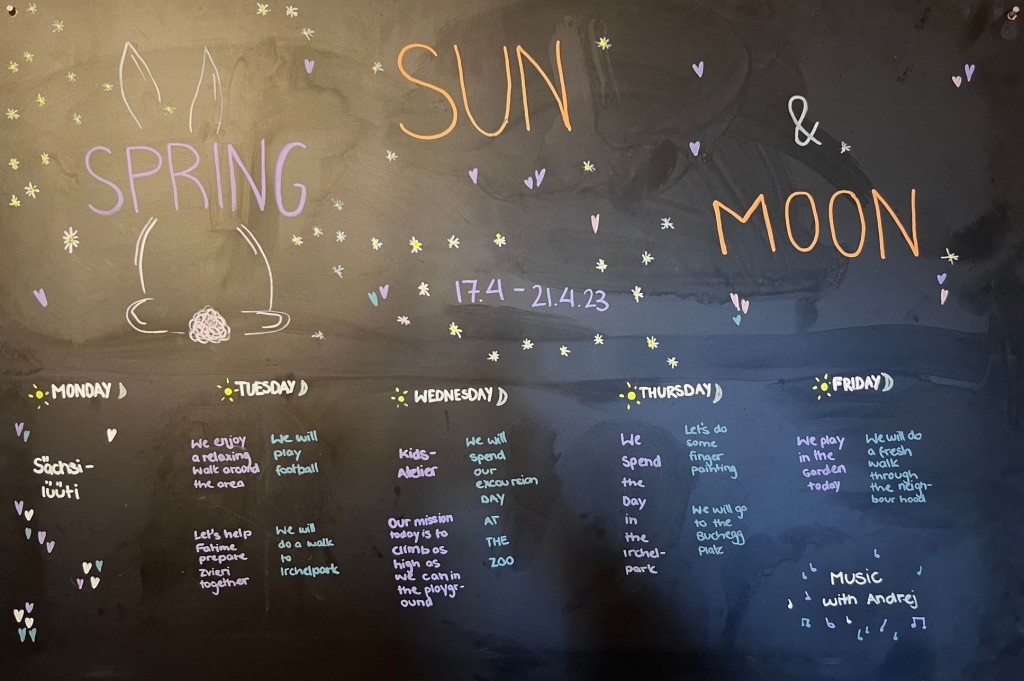 SPRING
SUN
&
MOON
17.4 - 21.4.23
MONDAY
Sächsi-
lüüti
TUESDAY
We enjoy
a relaxing
walk around
the area
Let's help
Fatime
prepare
Zvieri
together
We will
play
football
We will
do a walk
to
Irchelpark
WEDNESDAY
Kids-
Atelier
Our mission
today is to
climb as
high as
we can in
the playgr-
ound
We will
spend
our
excursion
DAY
AT
THE
ZOO
THURSDAY
We
Spend
the
Day
in
the
Irchel-
park
Let's do
some
finger
painting
We will go
to the
Buchegg
Platz
FRIDAY
We play
in the
Garden
today
We will do
a fresh
walk
through
the neigh-
bour hood
Music
with Andrej